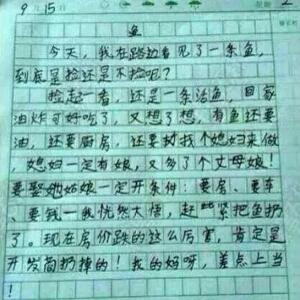 9月15日 星期
鱼
今天，我在路边看见了一条鱼，
到底是捡还是不捡呢？
捡起一看，还是一条活鱼，回家
油炸可好吃了，又想了想，有鱼还要
油，还要厨房，还要找个媳妇来做
，媳妇一定有娘，又多了个丈母娘！
要娶她姑娘一定开条件：要房、要车
、要钱一我恍然大悟，赶紧把鱼扔
了。现在房价跌的这么厉害，肯定是
开发商扔掉的！我的妈呀，差点上当
！